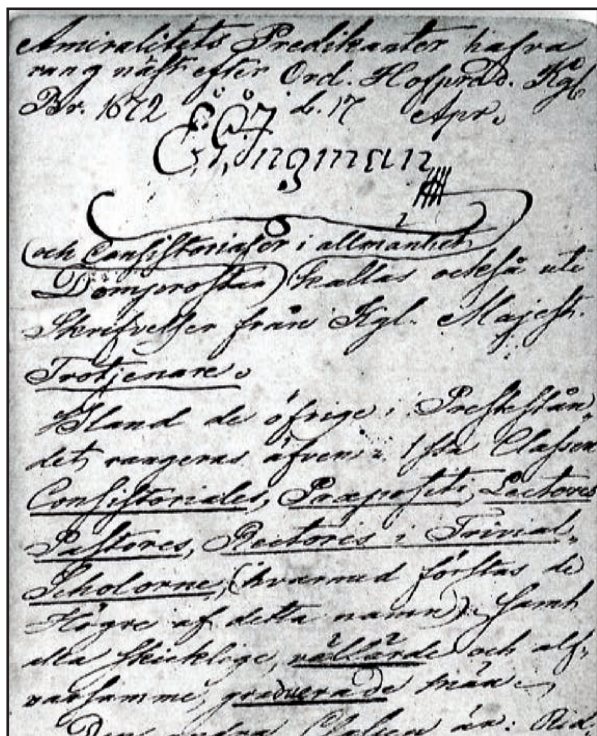 Amiralitets Predikanter hafva
rang näst efter Ord. Hofpräd. Kgl
Br. 1672 d. 17 Apr.
Öngman
och Consistorialer i allmänhet
Domprostar) kallas också uti
Skrifvelser från Kgl. Majest.
Trotjenare.
Bland de öfrige i Prestestån„
det, rangeras äfven i 1sta Classen
Consistoriales, Præpositi, Lectores
Pastores, Rectores i Trivial„
Scholorne, (hvarmed förstås de
Högre af detta namn) samt
alla skicklige, vällärde och alf„
varsamme, graduerade män.
Den andra Classen är: Rid„